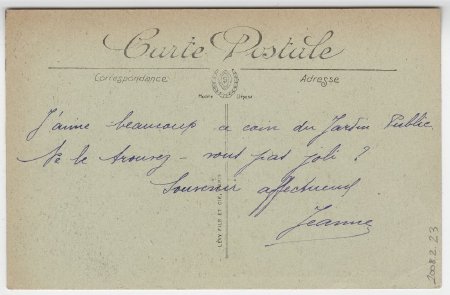 Carte Postale
Correspondance
Adresse
J'aime beaucoup ce coin du Jardin Public
Ne le trouvez-vous pas joli ?
Souvenir affectueux
Jeanne
LÉVY FILS ET CIE, PARIS
2008.2.23